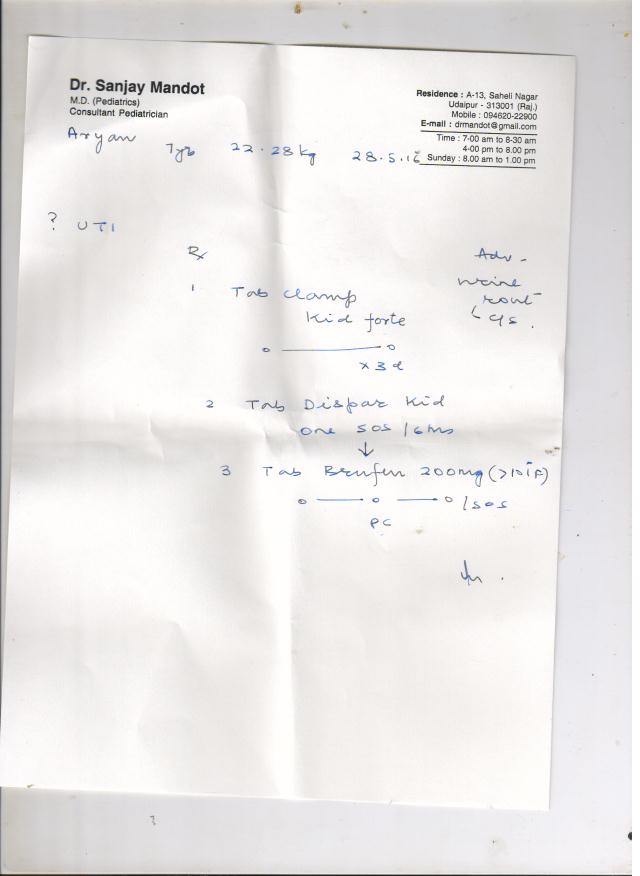 Dr. Sanjay Mandot
M.D. (Pediatrics)
Consultant Pediatrician
Residence : A-13, Saheli Nagar
Udaipur - 313001 (Raj.)
Mobile : 094620-22900
E-mail : drmandot@gmail.com
Time : 7-00 am to 8-30 am
4-00 pm to 8.00 pm
Sunday : 8.00 am to 1.00 pm
Aryan
7yrs 22.28kg 28.5.16
? UTI
Rx
Adv -
urine
rout
c/s.
1 Tab Clamp
Kid forte
o — o
x 3 d
2 Tab Dispar Kid
one sos / 6hrs
↓
3 Tab Brufen 200mg
o — o — o / sos
PC